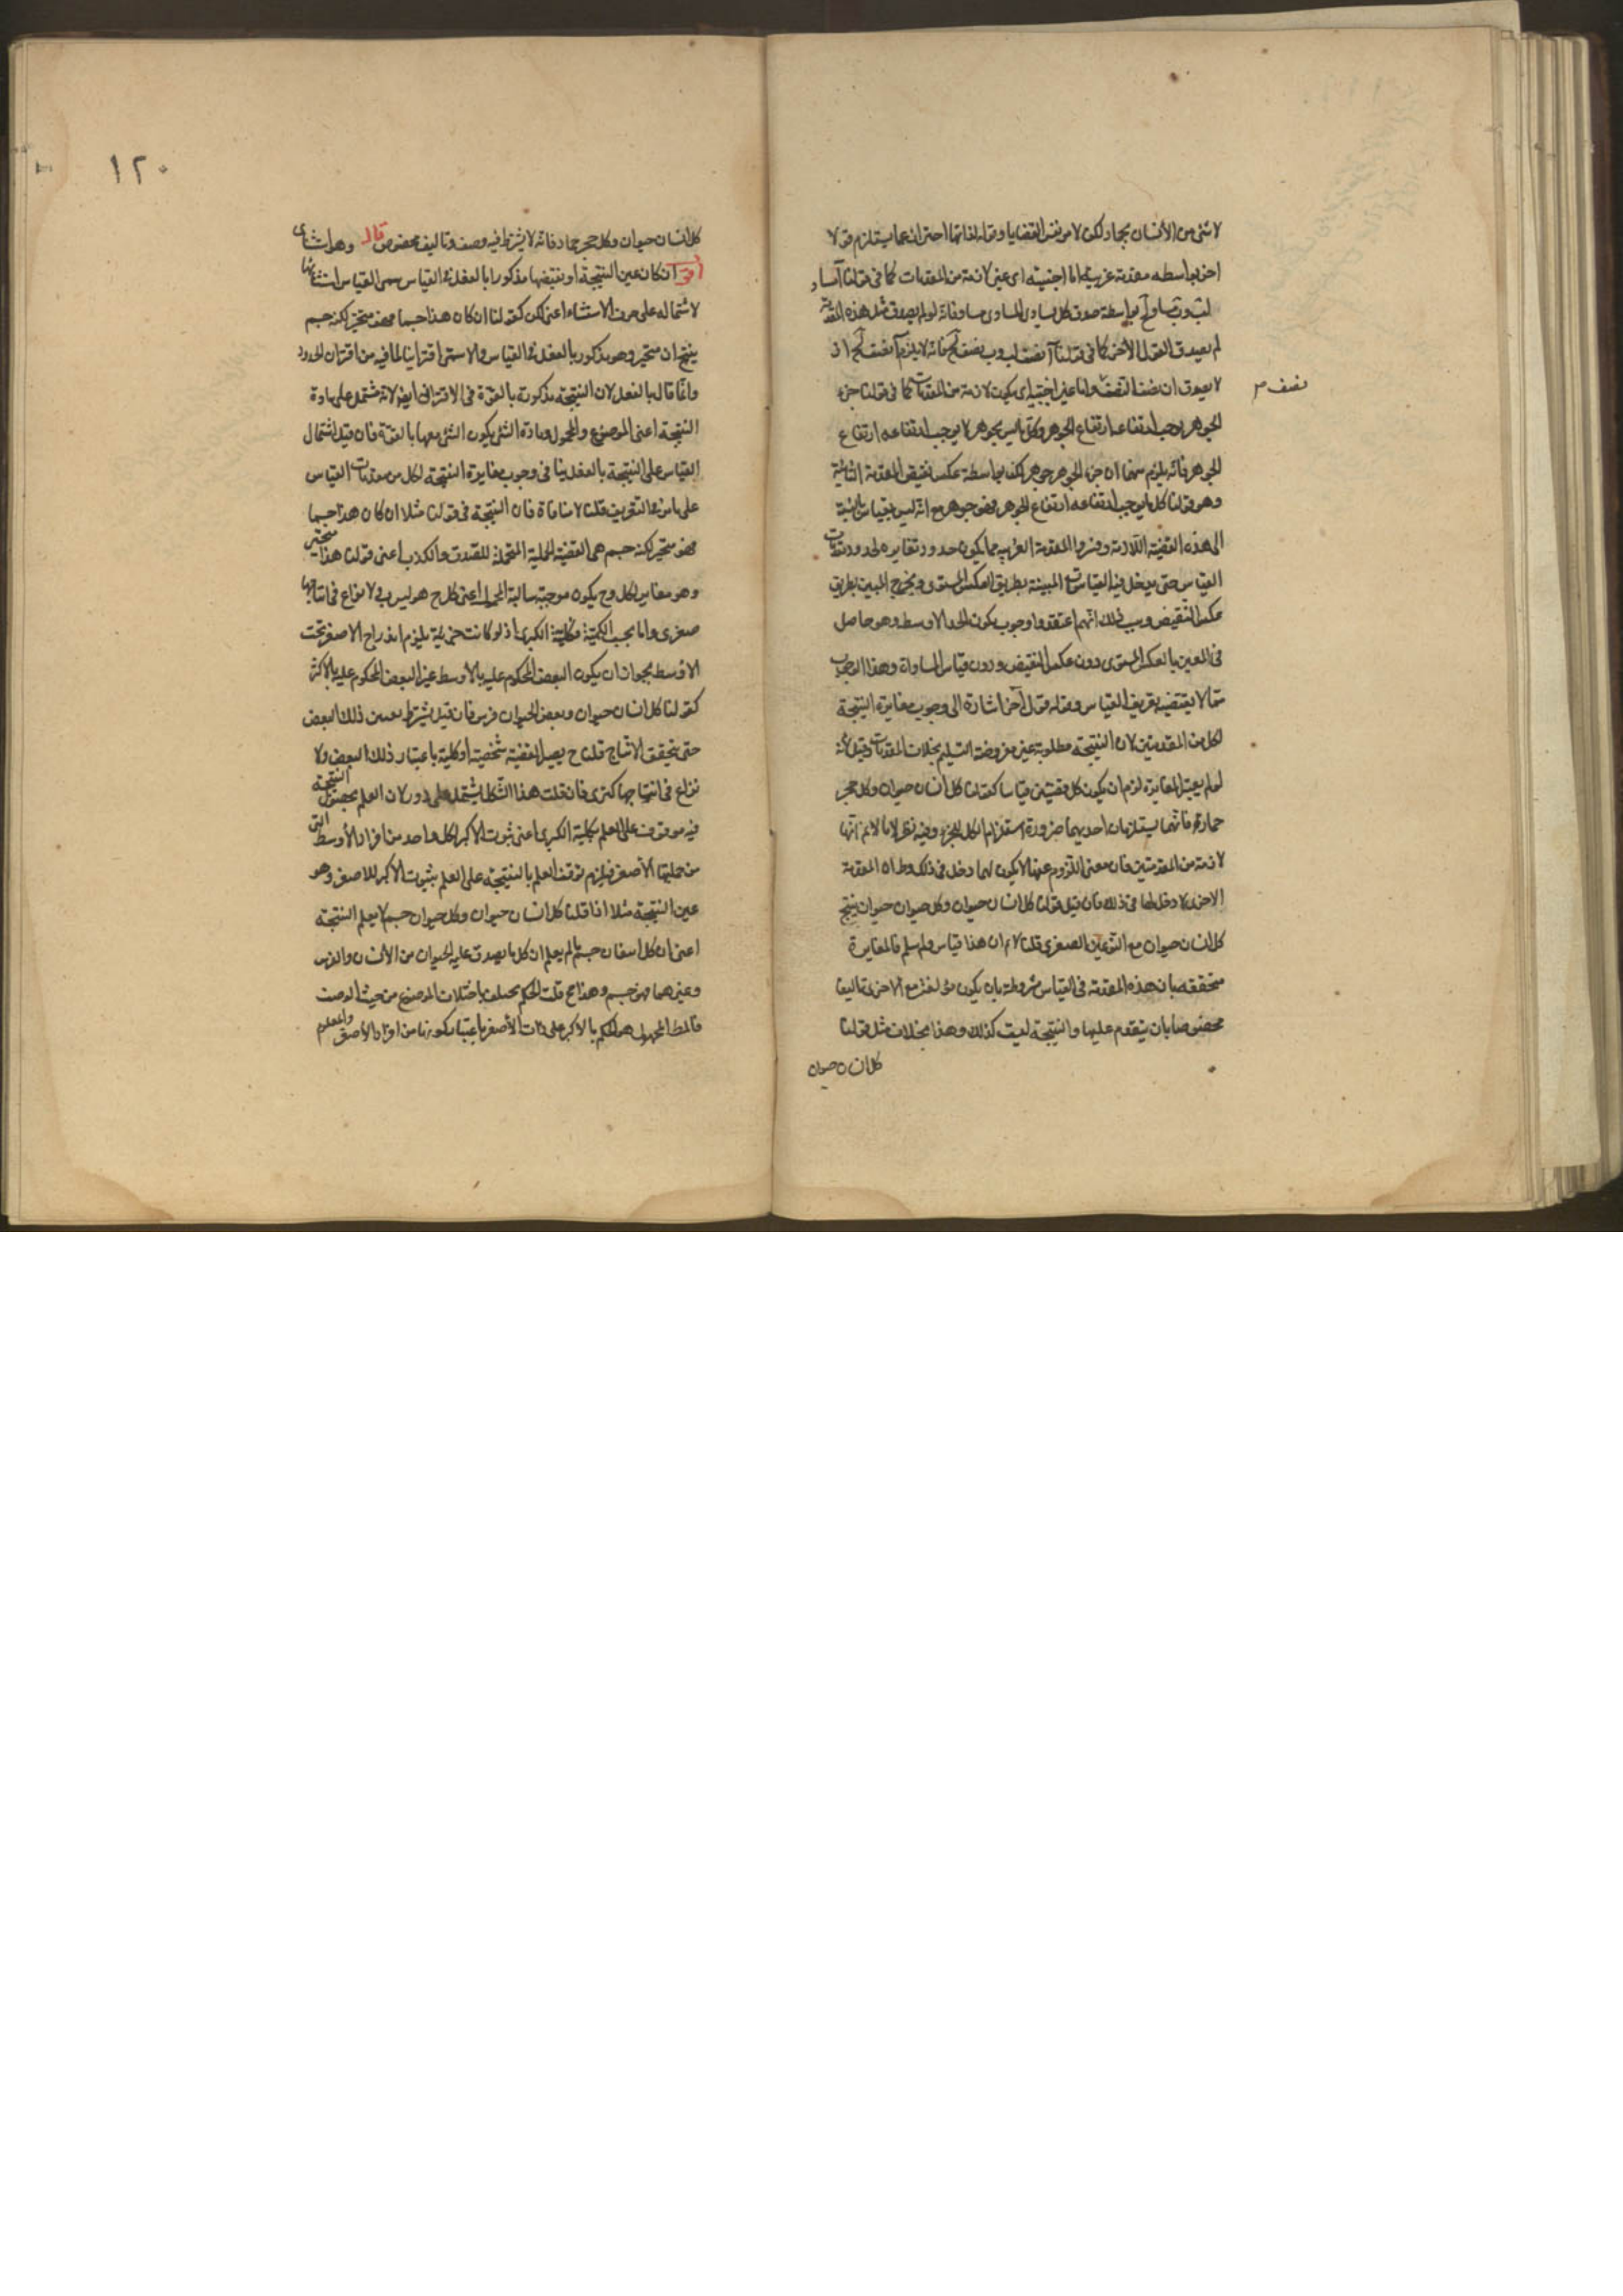 لا شئ من الأنسان بجماد لكن لا من نفس القضايا وقوله لذاتها احتراز عما يستلزم قولا
اخر بواسطه مقدمة غريبة اما اجنبية اى غير لازمة من المقدمات كما فى قولنا آ مساو
لب وب مساو لج بواسطة صدق كل مساوى المساوى مساو فانه لو لم يصدق مثل هذه المقدمة
لم يصدق القول الأخر كما فى قولنا آ نصف لب وب نصف لج فانه لا يلزم آ نصف لج اذ
لا يصدق ان نصف النصف واما غير اجنبية اى يكون لازمة من المقدمات كما فى قولنا جزء
نصف
الجوهر يوجب ارتفاعه ارتفاع الجوهر وكل ما ليس بجوهر لا يوجب ارتفاعه ارتفاع
الجوهر فانه يلزم منهما ان جزء الجوهر جوهر لكن بواسطة عكس نقيض المقدمة الثانية
وهو قولنا كل ما يوجب ارتفاعه ارتفاع الجوهر فهو جوهر مع انه ليس بقياس بالنسبة
الى هذه القضية اللازمة وفسروا المقدمة الغريبة مما يكون حدودها مغايرة لحدود مقدمات
القياس حتى يدخل فيه القياسات المبينة بطريق العكس المستوى ويخرج المبين بطريق
عكس النقيض وسبب ذلك انهم اعتقدوا وجوب تكرر الحد الاوسط وهو حاصل
فى المبين بالعكس المستوى دون عكس النقيض ودون قياس المساواة وهذا الوجوب
مما لا يقتضيه تعريف القياس وقوله قول آخر اشارة الى وجوب مغايرة النتيجة
لكل من المقدمتين لان النتيجة مطلوبة غير مفروضة التسليم بخلاف المقدمات وقيل لانه
لو لم يعتبر المغايرة لزم ان يكون كل قضيتين قياسا كقولنا كل انسان حيوان وكل حجر
جماد فانهما يستلزمان احديهما ضرورة استلزام الكل للجزء وفيه نظر لانا لا نم انها
لازمة من المقدمتين فان معنى اللزوم عنهما ان يكون لهما دخل فى ذلك وظ ان المقدمة
الاخرى لا دخل لها فى ذلك فان قيل قولنا كل انسان حيوان وكل حيوان حيوان ينتج
كل انسان حيوان مع انه عين الصغرى قلنا لا نم ان هذا قياس ولم سلم فالمغايرة
متحققه بان هذه المقدمة فى القياس مشروطة بان يكون مؤلفة مع الاخرى تاليفا
مخصوصا بان يتقدم عليها والنتيجة ليست كذلك وهذا بخلاف مثل قولنا
كل انسان حيوان
١٢٠
كل انسان حيوان وكل حجر جماد فانه لا يشترط فيه وصف وتاليف مخصوص قال وهو استثنائى
اقول ان كان عين النتيجة او نقيضها مذكورا بالفعل فى القياس سمى القياس استثنائيا
لاشتماله على حرف الاستثناء اعنى لكن كقولنا ان كان هذا جسما فهو متحيز لكنه جسم
ينتج انه متحيز وهو مذكور بالفعل فى القياس والا سمى اقترانيا لما فيه من اقتران الحدود
وانما قال بالفعل لان النتيجة مذكورة بالقوة فى الاقترانى ايضا لانه مشتمل على مادة
النتيجة اعنى الموضوع والمحمول ومادة الشئ يكون الشئ معها بالقوة فان قيل اشتمال
القياس على النتيجة بالفعل ينافى وجوب مغايرة النتيجة لكل من مقدمات القياس
على ما مر فى التعريف قلنا لا منافاة فان النتيجة فى قولنا مثلا ان كان هذا جسما
فهو متحيز لكنه جسم هى القضية الحملية المحتملة للصدق والكذب اعنى قولنا هذا متحيز
وهو مغاير لكل وح يكون موجبة سالبة المحمول اعنى كل ج هو ليس ب ولا نزاع فى انتاجها
صغرى واما بحسب الكمية فكلية الكبرى اذ لو كانت جزئية لم يلزم اندراج الاصغر تحت
الاوسط لجواز ان يكون البعض المحكوم عليه بالأوسط غير البعض المحكوم عليه بالاكبر
كقولنا كل انسان حيوان وبعض الحيوان فرس فان قيل يشترط تعيين ذلك البعض
حتى يتحقق الانتاج قلنا ح يصير القضية شخصية او كلية باعتبار ذلك البعض ولا
نزاع فى انتاجها كبرى فان قلت هذا الشكل يشتمل على دور لان العلم بحصول النتيجة
فيه موقوف على العلم بكلية الكبرى اعنى ثبوت الاكبر لكل واحد من افراد الأوسط التى
من جملتها الأصغر فيلزم توقف العلم بالنتيجة على العلم بثبوت الاكبر للاصغر وهو
عين النتيجة مثلا اذا قلنا كل انسان حيوان وكل حيوان جسم لا يعلم النتيجة
اعنى ان كل انسان جسم ما لم يعلم ان كل ما يصدق عليه الحيوان من الأنسان والفرس
وغيرهما فهو جسم وهذا مح قلت الحكم يختلف باختلاف الموضوع من حيث الوصف
فالمط المجهول هو الحكم بالاكبر على ذات الأصغر باعتبار كونها من افراد الأصغر والمعلوم